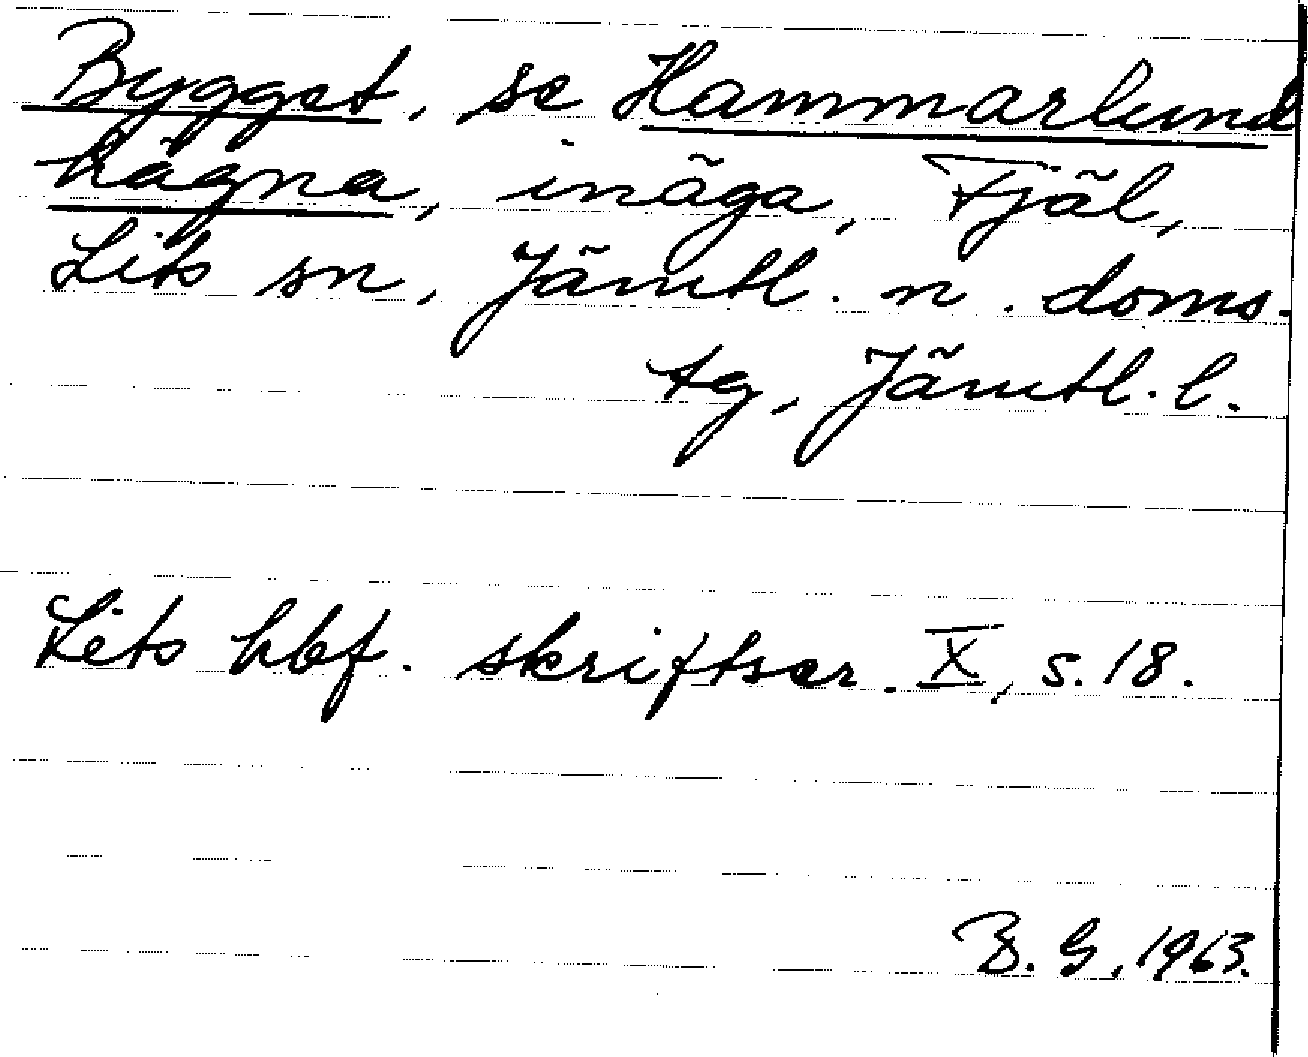 Bygget, se Hammarlund
hägna, inäga, Fjäl,
Lits sn, Jämtl. n. doms-
tg, Jämtl. l.
Lits hbf. skriftser. X, s. 18.
B. G. 1963.